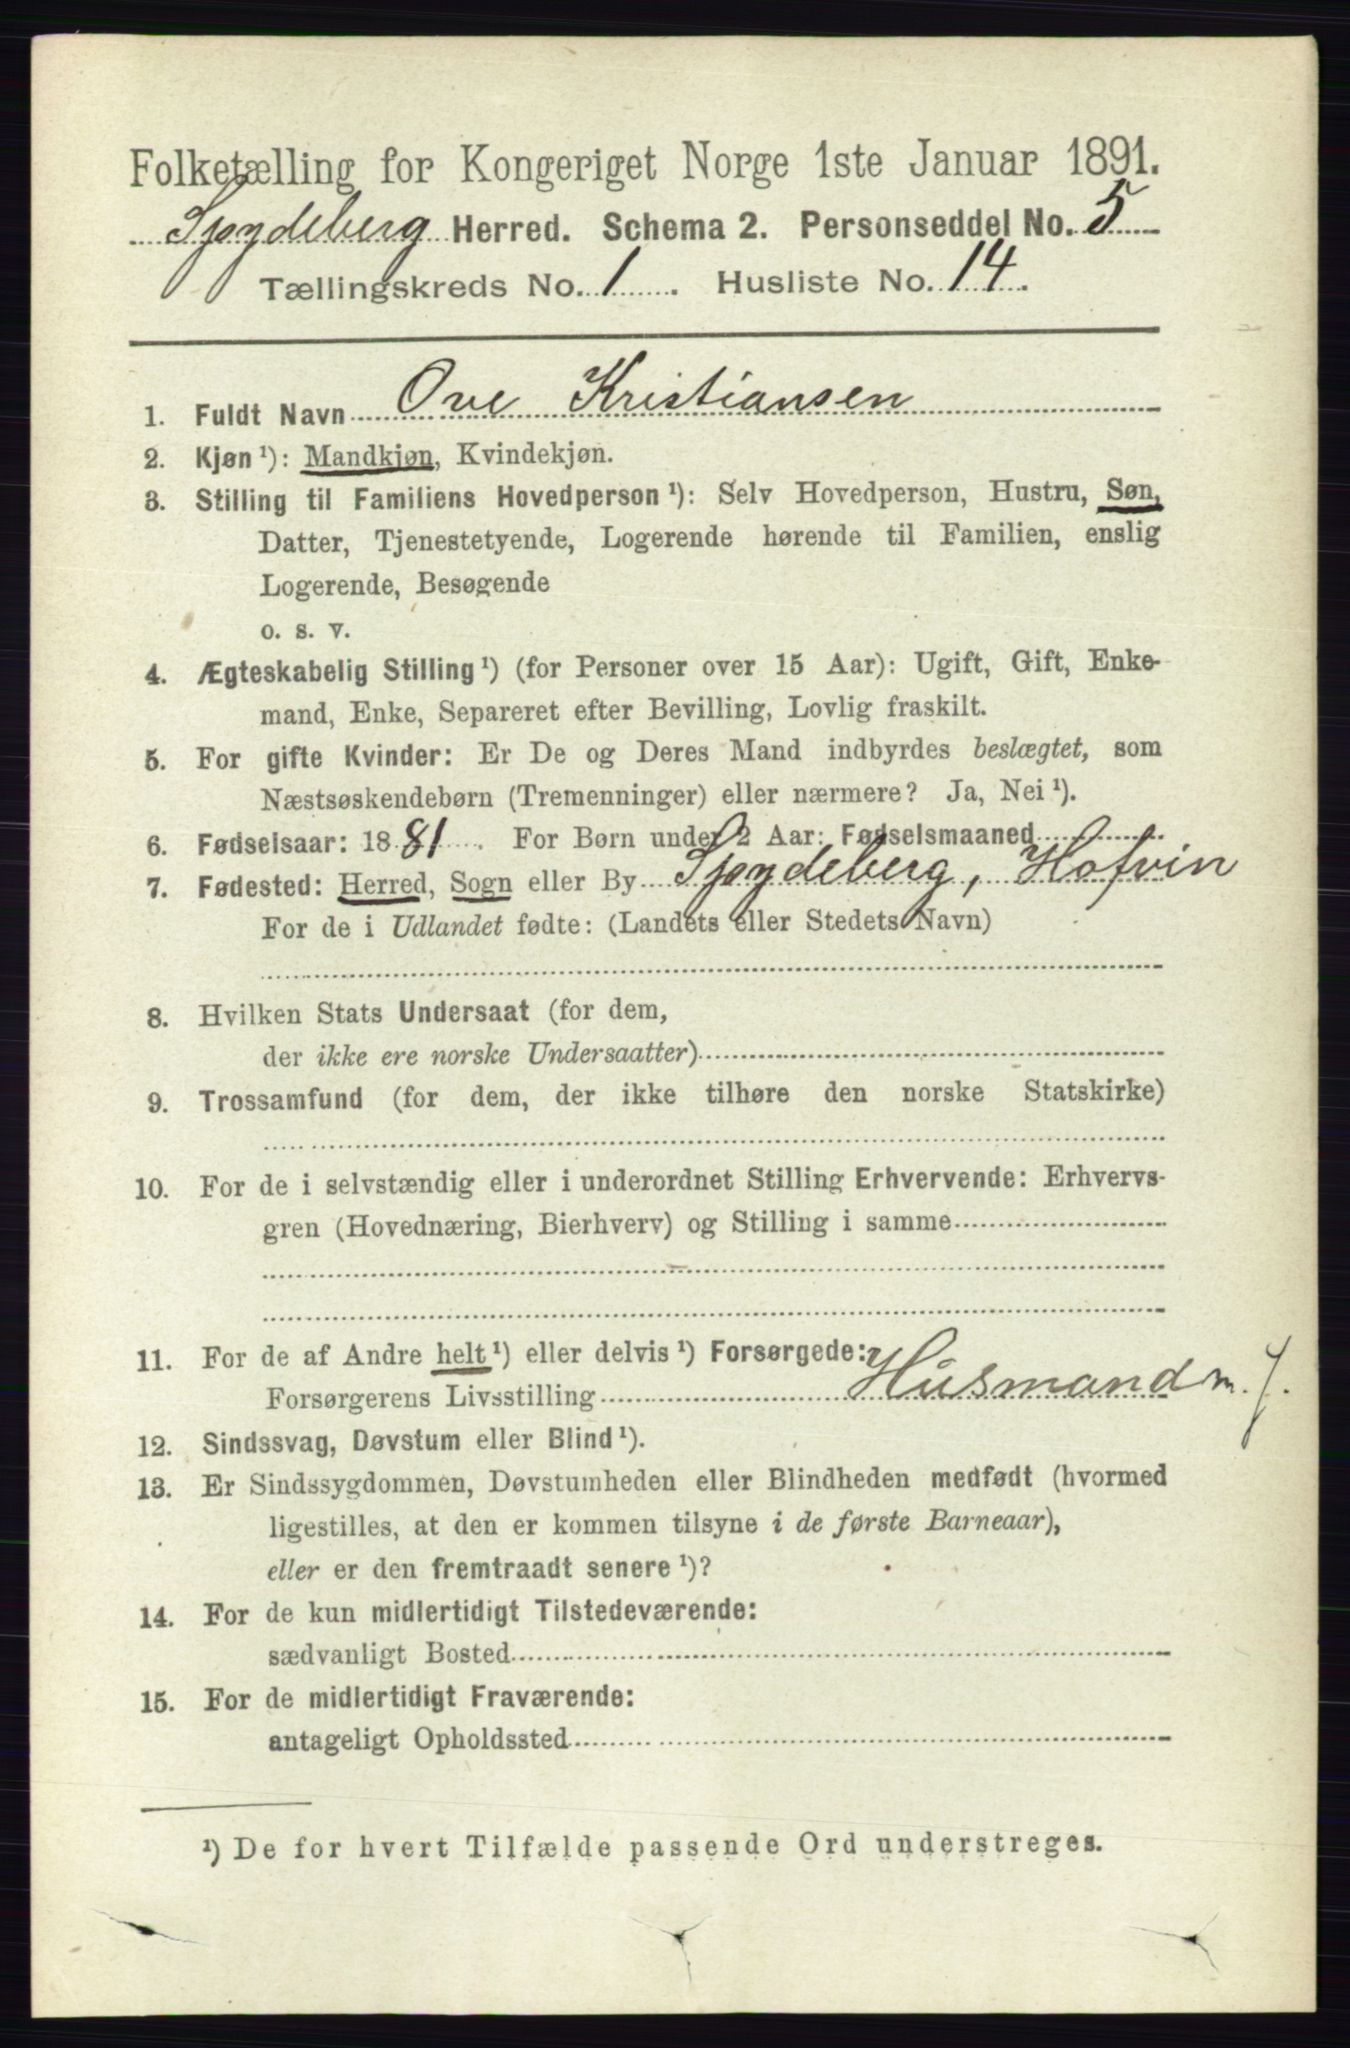 Folketælling for Kongeriget Norge 1ste Januar 1891.
Spydeberg Herred. Schema 2. Personseddel No. 5
Tællingskreds No. 1. Husliste No. 14.
1. Fuldt Navn Ove Kristiansen
2. Kjøn ¹): Mandkjøn, Kvindekjøn.
3. Stilling til Familiens Hovedperson ¹): Selv Hovedperson, Hustru, Søn,
Datter, Tjenestetyende, Logerende hørende til Familien, enslig
Logerende, Besøgende
o. s. v.
4. Ægteskabelig Stilling ¹) (for Personer over 15 Aar): Ugift, Gift, Enke-
mand, Enke, Separeret efter Bevilling, Lovlig fraskilt.
5. For gifte Kvinder: Er De og Deres Mand indbyrdes beslægtet, som
Næstsøskendebørn (Tremenninger) eller nærmere? Ja, Nei ¹).
6. Fødselsaar: 1881. For Børn under 2 Aar: Fødselsmaaned
7. Fødested: Herred, Sogn eller By Spydeberg, Hofvin
For de i Udlandet fødte: (Landets eller Stedets Navn)
8. Hvilken Stats Undersaat (for dem,
der ikke ere norske Undersaatter)
9. Trossamfund (for dem, der ikke tilhøre den norske Statskirke)
10. For de i selvstændig eller i underordnet Stilling Erhvervende: Erhvervs-
gren (Hovednæring, Bierhverv) og Stilling i samme
11. For de af Andre helt ¹) eller delvis ¹) Forsørgede:
Forsørgerens Livsstilling Husmand m. J.
12. Sindssvag, Døvstum eller Blind ¹).
13. Er Sindssygdommen, Døvstumheden eller Blindheden medfødt (hvormed
ligestilles, at den er kommen tilsyne i de første Barneaar),
eller er den fremtraadt senere ¹)?
14. For de kun midlertidigt Tilstedeværende:
sædvanligt Bosted
15. For de midlertidigt Fraværende:
antageligt Opholdssted
¹) De for hvert Tilfælde passende Ord understreges.